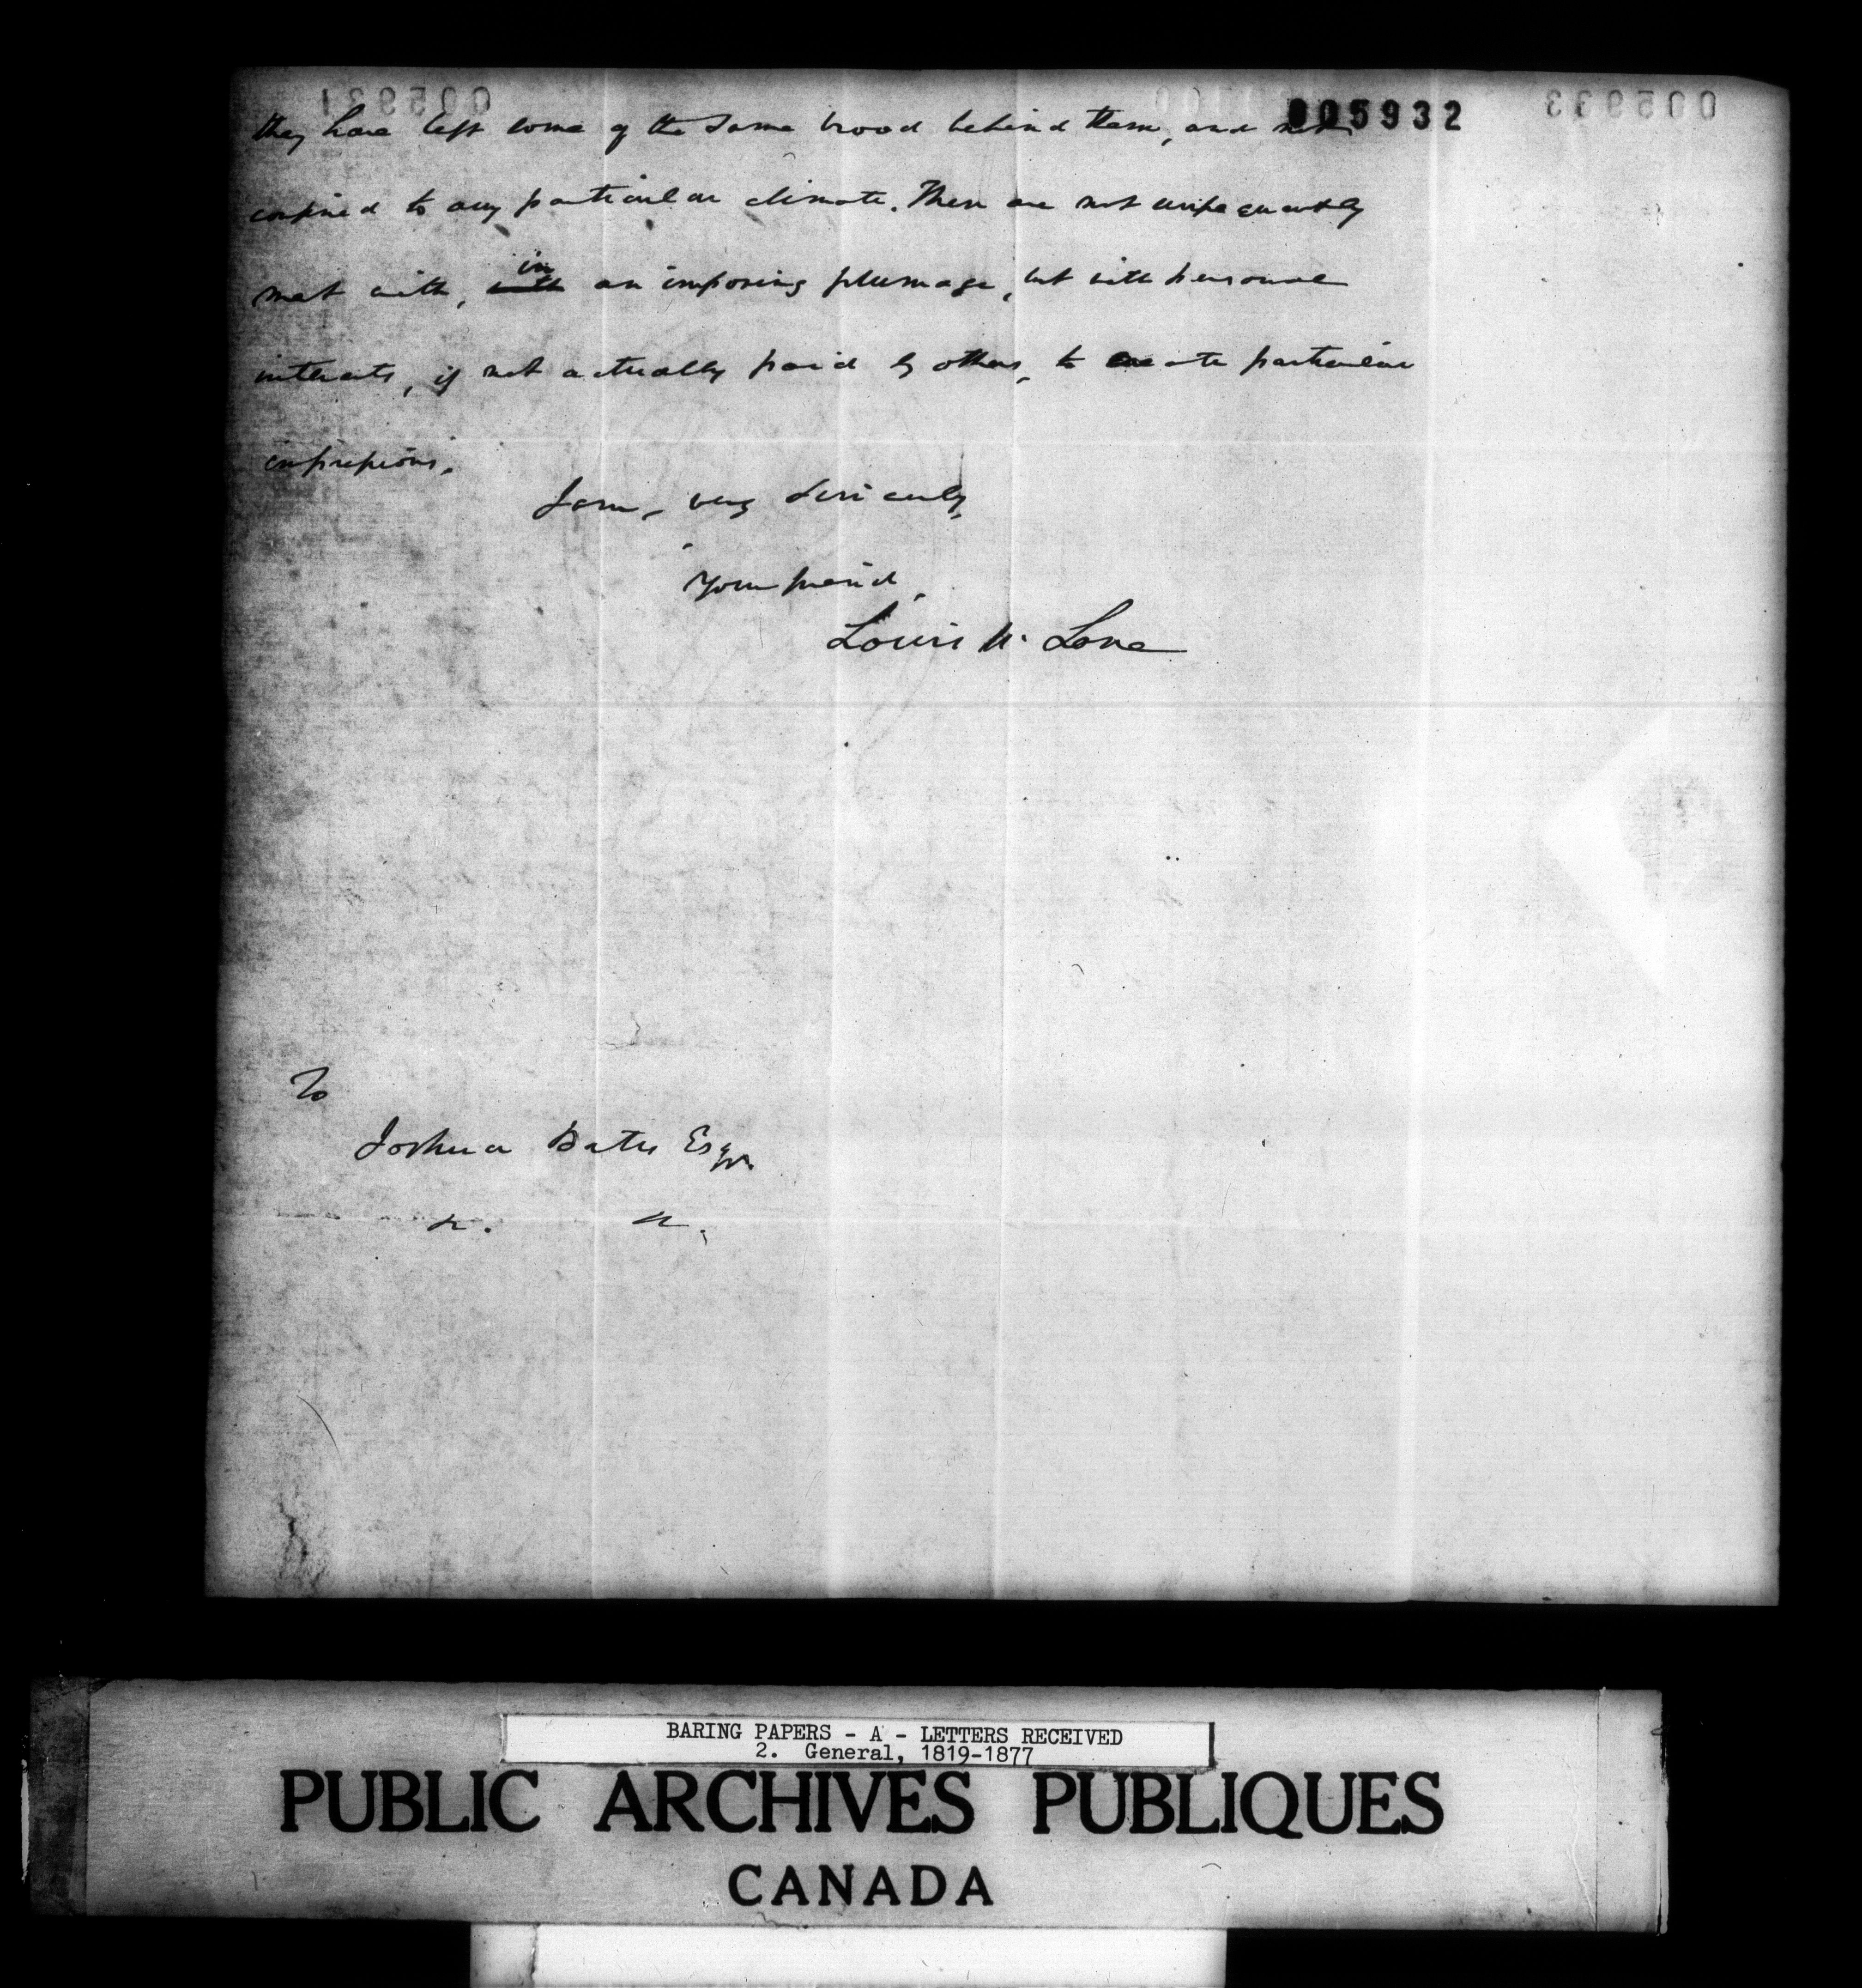 005932
they have left some of the same brood behind them, and not
confined to any particular climate. These are not unfrequently
met with, in an imposing plumage, but with personal
interests, if not actually paid by others, to create particular
impressions.
I am, very sincerely,
Your friend,
Louis McLane
To
Joshua Bates Esqr.
&c. &c.
BARING PAPERS - A - LETTERS RECEIVED
2. General, 1819-1877
PUBLIC ARCHIVES PUBLIQUES
CANADA